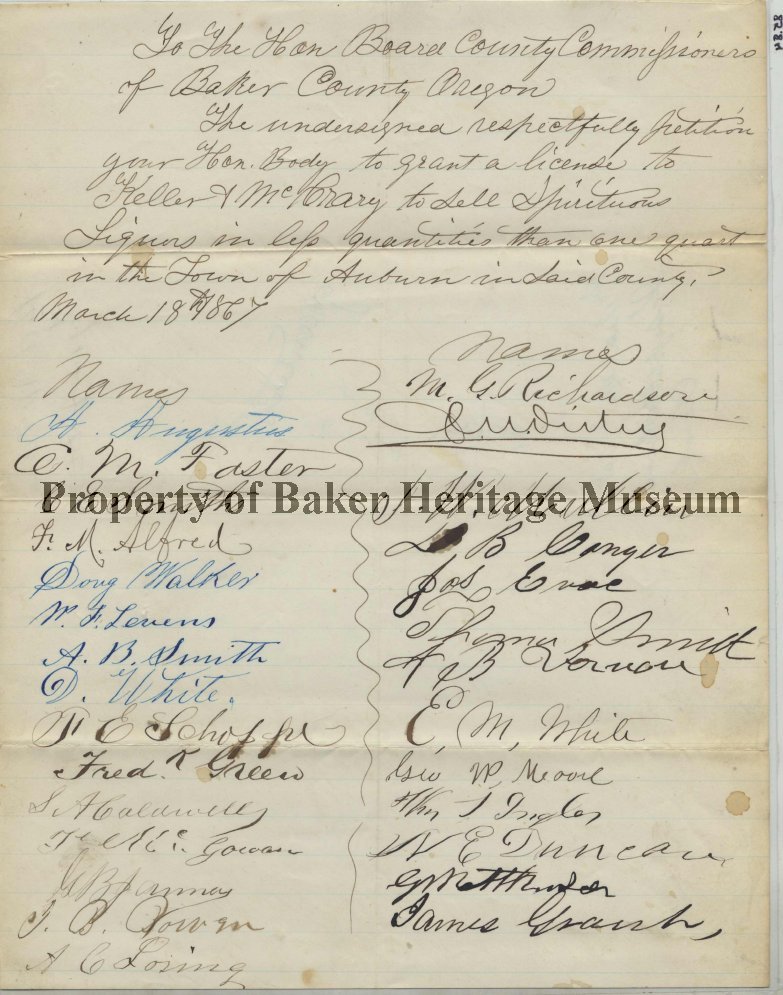 To The Hon Board County Commissioners
of Baker County Oregon
The undersigned respectfully petition
your Hon. Body to grant a license to
Keller & McCrary to Sell Spirituous
Liquors in less quantities than one quart
in the Town of Auburn in Said County,
March 18th 1867
Names
A. Augustus
C. M. Foster
C E Smith
F. M. Alfred
Doug Walker
W. F. Levens
A. B. Smith
D. White.
F E Schoppe
Fred. K Green
S A Caldwell
Mc Gowan
J. B. Bowen
A C Loring
Names
M. G. Richardson
B Conger
Jos
Thomas Smith
B
E, M, White
Geo W. Moore
Wm T Ingles
W E Duncan
James Grant,
Property of Baker Heritage Museum